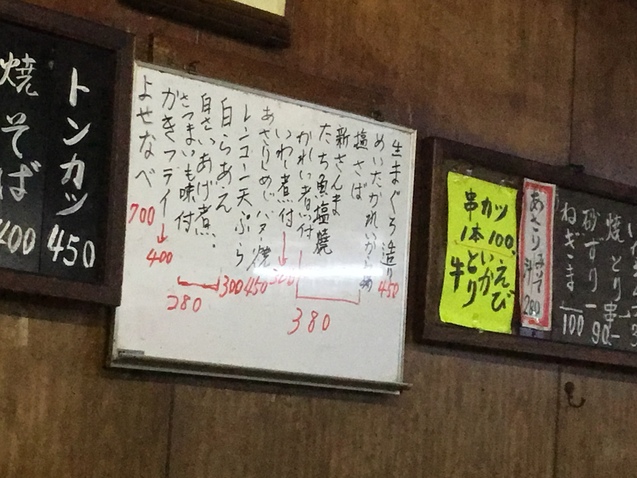 トンカツ 450
焼そば 400
生まぐろ造り 450
めいたかれいから揚
塩さば
新さんま
たち魚塩焼
かれい煮付
380
いわし煮付
あさりしめじバター焼
レンコン天ぷら
450
300
白らあえ
白さいあげ煮
さつまいも味付
280
かきフライ
400
よせなべ
700
串カツ
1本100
えび
いか
とり
牛
あさり
汁
200
焼とり
串
90
砂ずり
ねぎま
100